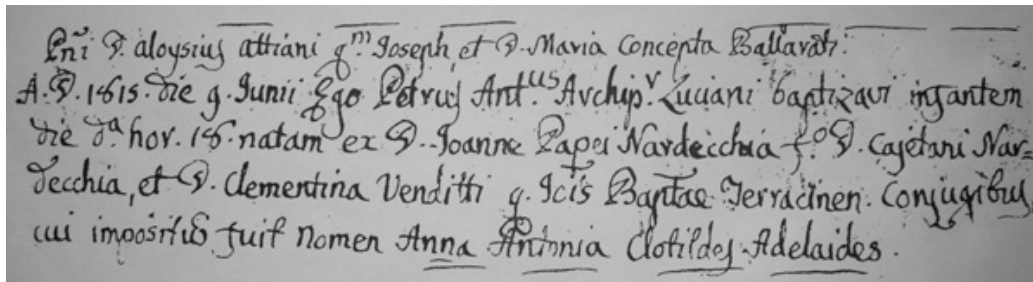 Pñi D. aloysius attiani q.m Joseph, et D. Maria Concepta Ballarati.
A.D. 1815. die 9. Junii Ego Petrus Ant.us Archip.r Luciani baptizavi infantem
die d.a hor. 18. natam ex D. Joanne Papei Nardecchia f.o D. Cajetani Nar=
decchia, et D. Clementina Venditti q. Jcis Baptae Terracinen. Conjugibus
cui impositus fuit nomen Anna Antonia Clotildes Adelaides.